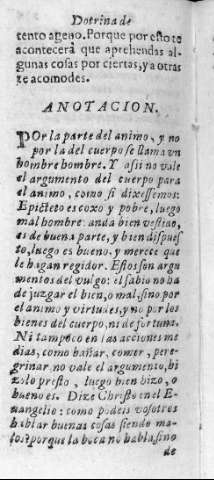 Dotrina de
tento ageno. Porque por esto te
acontecerà que aprehendas al-
gunas cosas por ciertas, y a otras
te acomodes.
ANOTACION.
POr la parte del animo, y no
por la del cuerpo se llama un
hombre hombre. Y assi no vale
el argumento del cuerpo para
el animo, como si dixessemos:
Epicteto es coxo y pobre, luego
mal hombre: anda bien vestido,
es de buena parte, y bien dispues-
to, luego es bueno, y merece que
le hagan regidor. Estos son argu
mentos del vulgo: el sabio no ha
de juzgar el bien, o mal, sino por
el animo y virtudes, y no por los
bienes del cuerpo, ni de fortuna.
Ni tampoco en las acciones me
dias, como bañar, comer, pere-
grinar no vale el argumento, hi
zolo presto, luego bien hizo, o
bueno es. Dize Christo en el E-
uangelio: como podeis vosotros
hablar buenas cosas siendo ma-
los? porque la boca no habla sino
de